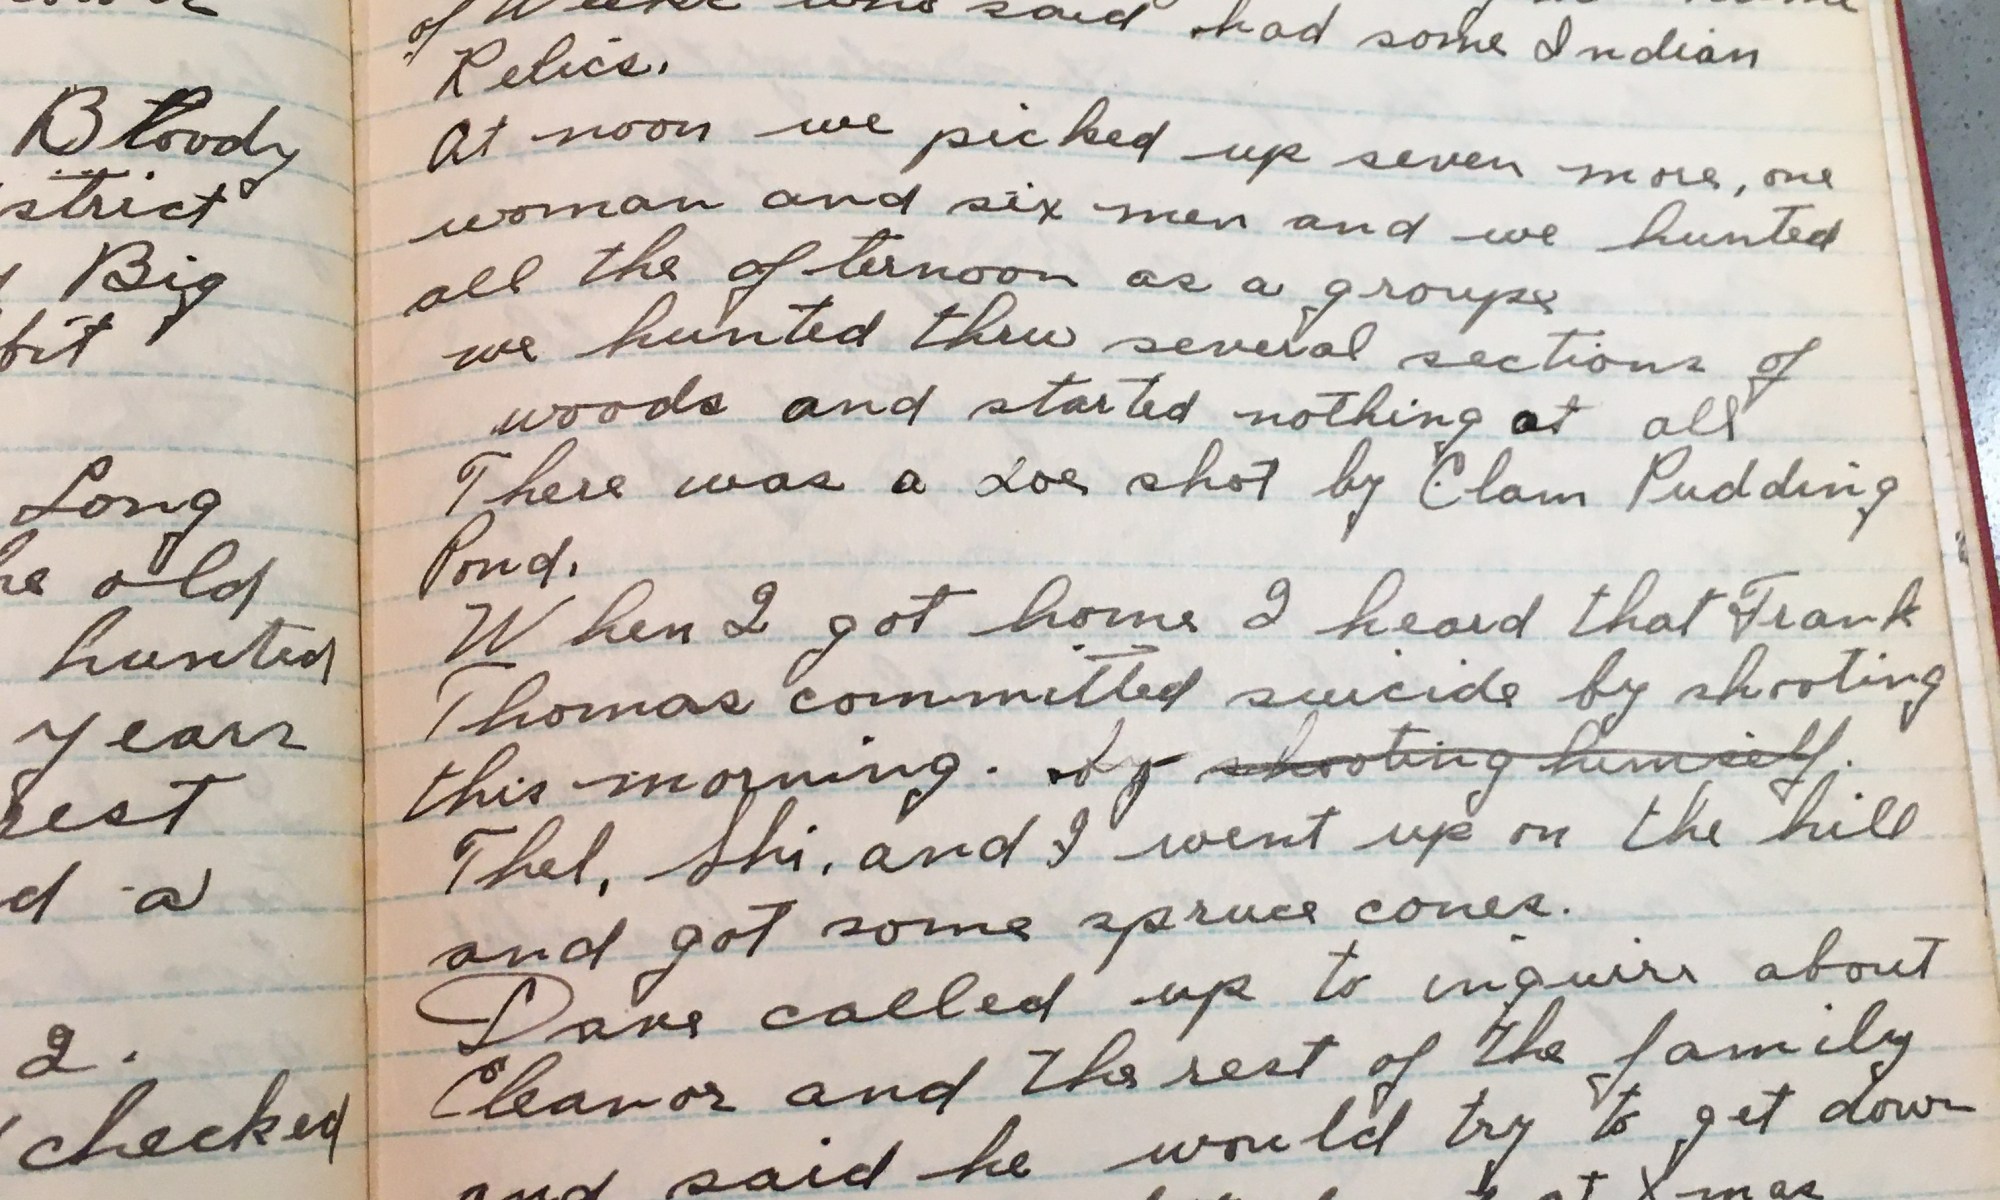 Bloody
strict
Big
bit
Long
he old
hunted
years
rest
d a
2.
checked
of who said had some Indian
Relics.
At noon we picked up seven more, one
woman and six men and we hunted
all the afternoon as a groups
we hunted thru several sections of
woods and started nothing at all
There was a Doe shot by Clam Pudding
Pond.
When I got home I heard that Frank
Thomas committed suicide by shooting
this morning. by shooting himself.
Thel, Shi, and I went up on the hill
and got some spruce cones.
Dave called up to inquire about
Eleanor and the rest of the family
and said he would try to get down
at Xmas